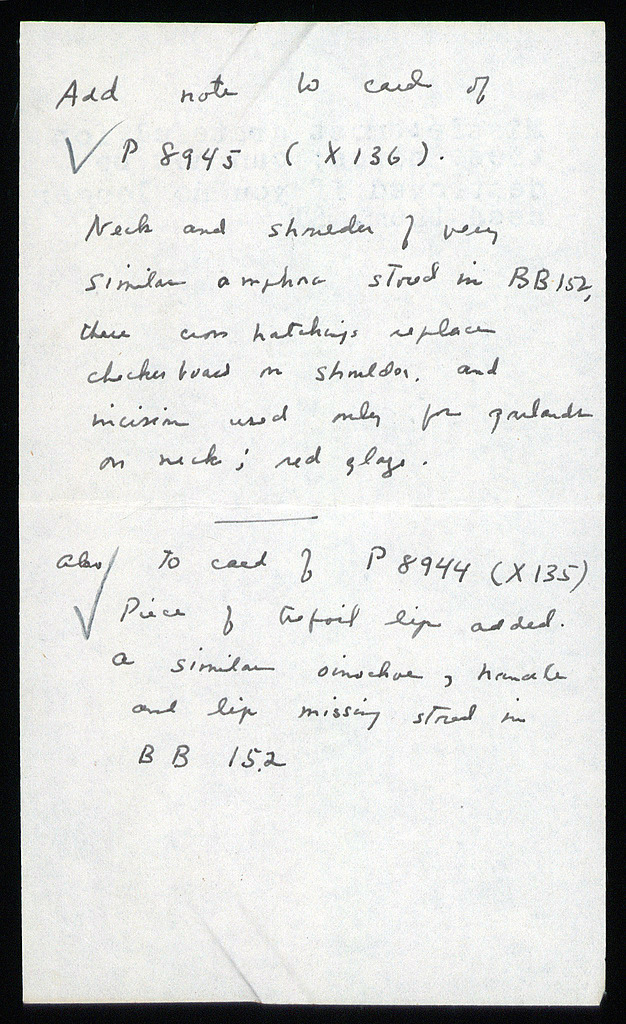 Add note to card of
✓ P 8945 (X136).
Neck and shoulder of very
similar amphora stored in BB152,
there cross hatchings replace
checkerboard on shoulder, and
incision used only for garlands
on neck; red glaze.
also to card of P 8944 (X135)
✓ Piece of trefoil lip added.
a similar oinochoe, handle
and lip missing stored in
BB 152